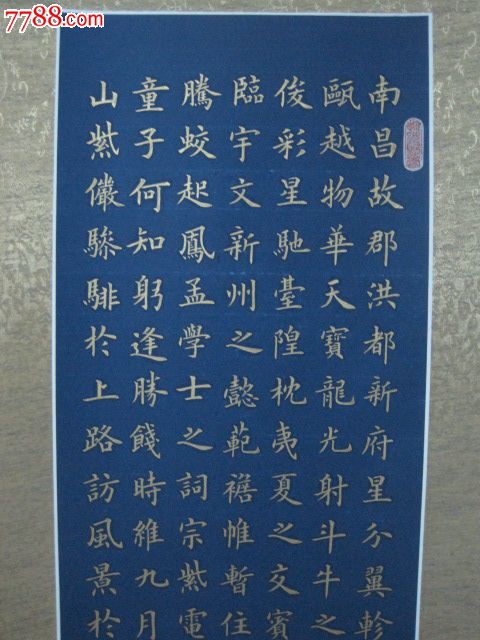 7788.com
中国收藏热线
南昌故郡洪都新府星分翼軫
甌越物華天寶龍光射斗牛之
俊彩星馳臺隍枕夷夏之交賓
臨宇文新州之懿範襜帷暫住
騰蛟起鳳孟學士之詞宗紫電
童子何知躬逢勝餞時維九月
山紫儼驂騑於上路訪風景於